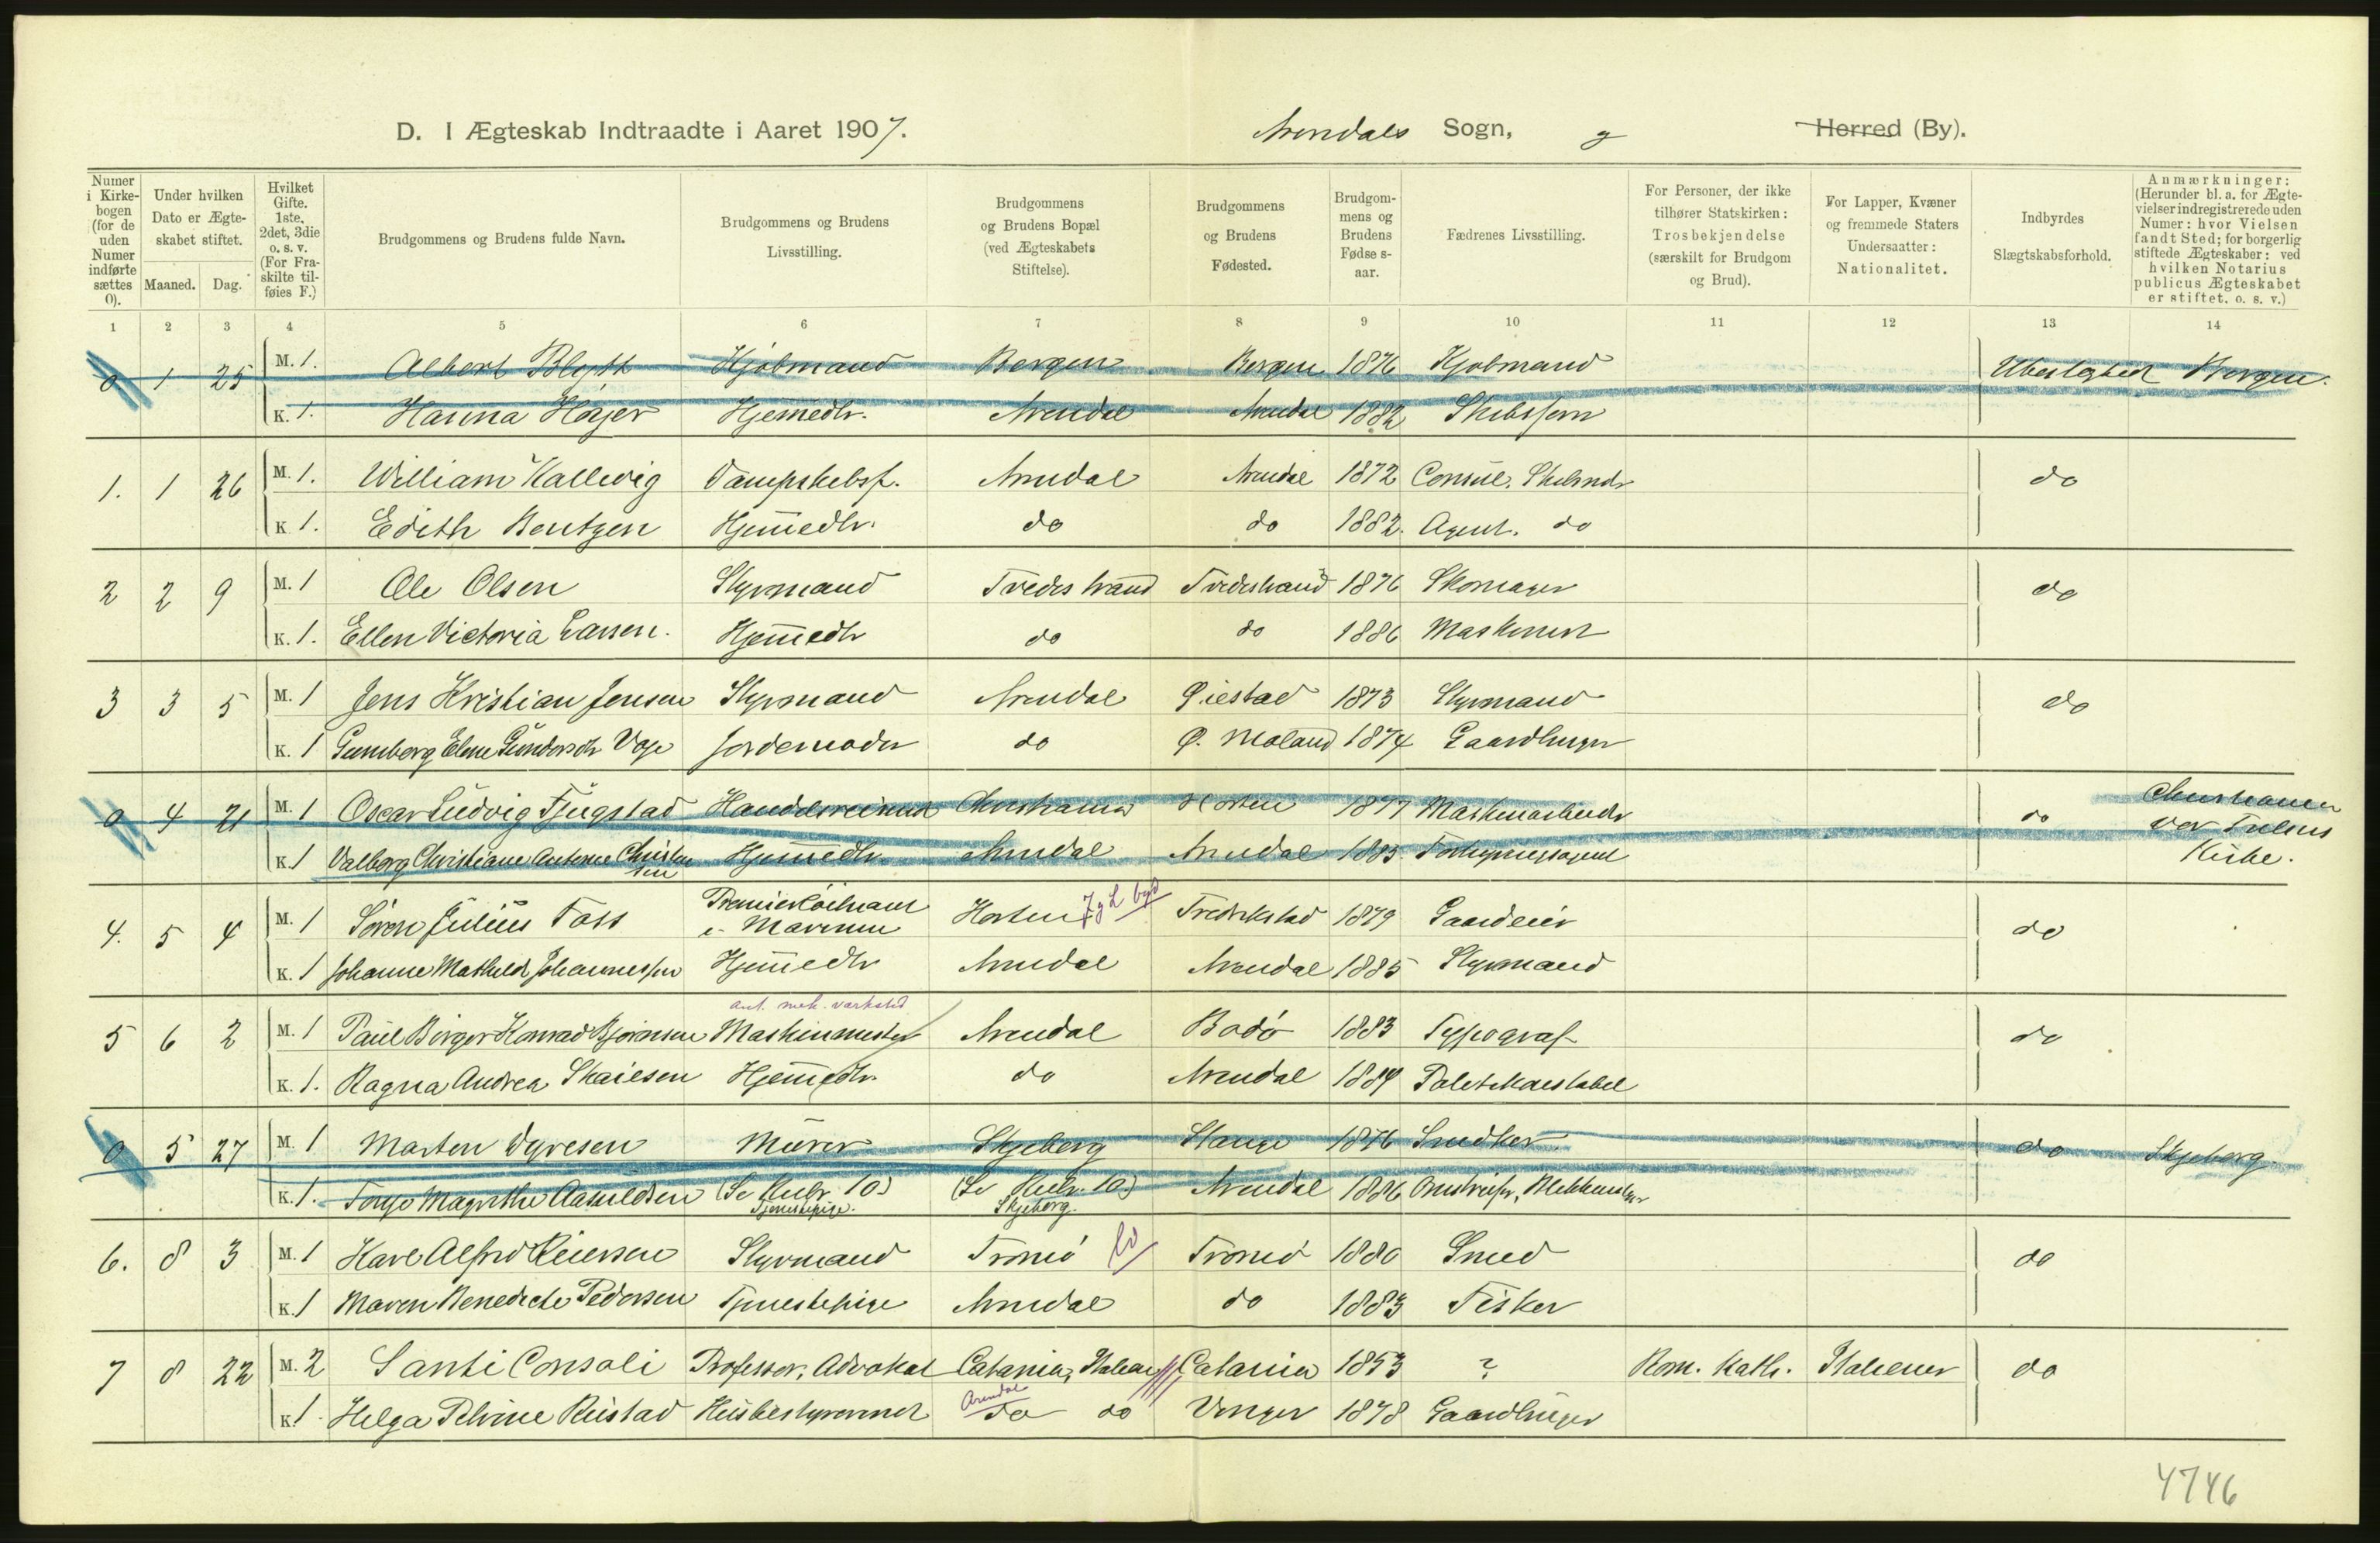 D. I Ægteskab Indtraadte i Aaret 1907. Arendals Sogn, g Herred (By).
Numer i Kirkebogen (for de uden Numer indførte sættes 0).
Under hvilken Dato er Ægteskabet stiftet.
Maaned. Dag.
Hvilket Gifte. 1ste, 2det, 3die o. s. v. (For Fraskilte tilføies F.)
Brudgommens og Brudens fulde Navn.
Brudgommens og Brudens Livsstilling.
Brudgommens og Brudens Bopæl (ved Ægteskabets Stiftelse).
Brudgommens og Brudens Fødested.
Brudgommens og Brudens Fødselsaar.
Fædrenes Livsstilling.
For Personer, der ikke tilhører Statskirken: Trosbekjendelse (særskilt for Brudgom og Brud).
For Lapper, Kvæner og fremmede Staters Undersaatter: Nationalitet.
Indbyrdes Slægtskabsforhold.
Anmærkninger: (Herunder bl. a. for Ægtevielser indregistrerede uden Numer: hvor Vielsen fandt Sted; for borgerlig stiftede Ægteskaber: ved hvilken Notarius publicus Ægteskabet er stiftet, o. s. v.)
1 2 3 4 5 6 7 8 9 10 11 12 13 14
0 1 25 M. 1. Albert Blytt Kjøbmand Bergen Bergen 1876 Kjøbmand Ubeslegtet Bergen.
K. 1. Hanna Højer Hjemmedtr. Arendal Arendal 1882 Skibsfører
1. 1 26 M. 1. William Kallevig Dampskibsf. Arendal Arendal 1872 Consul. do
K 1. Edith Bentzen Hjemmedtr. do do 1882. Agent. do
2 2 9 M. 1 Ole Olsen Styrmand Tvedestrand Tvedestrand 1876 Skomager do
K. 1. Ellen Victoria Larsen. Hjemmedtr do do 1886 Maskinist
3 3 5 M. 1 Jens Kristian Jensen Styrmand Arendal Øiestad 1873 Styrmand do
K. 1 Gunborg Elene Gundersdtr Vaje Jordemoder do Ø. Moland 1874 Gaardbruger
0 4 21 M. 1 Oscar Ludvig Fjugstad Handelsreisende Christiania Horten 1877 Maskinarbeider do Christiania Vor Frelsers Kirke.
K. 1 Valborg Christiane Antonie Christensen Hjemmedtr. Arendal Arendal 1885
4. 5 4 M. 1 Søren Julius Foss Premierløitnant i Marinen Horten Fredrikstad 1879 Gaardeier do
K. 1 Johanne Mathilde Johannessen Hjemmedtr Arendal Arendal 1885 Styrmand
ant. mek. verksted
5 6 2 M. 1 Paul Birger Konrad Bjørnsen Maskinmester Arendal Bodø 1883 Typograf do
K. 1. Ragna Andrea Hjemmedtr. do Arendal 1884 Politikonstabel
0 5 27 M. 1 Morten Dyresen Murer Skjeberg Stange 1876 Snedker. do Skjeberg.
K. 1. Magrethe (Se Rubr. 10) Tjenestepige. (Se Rubr. 10) Skjeberg. Arendal 1886
6. 8 3 M. 1 Karl Alfred Reiersen Styrmand Tromø Tromø 1880 Smed do
K. 1 Maren Benedicte Pedersen Tjenestepige Arendal do 1883 Fisker
7 8 22 M. 2 Santi Consoli Professor, Advokat Catania, Italien Catania 1853 ? Rom. Kath. Italiener do
K. 1. Helga Rustad Husbestyrerinde Arendal do do Vinger 1878 Gaardbruger
4746